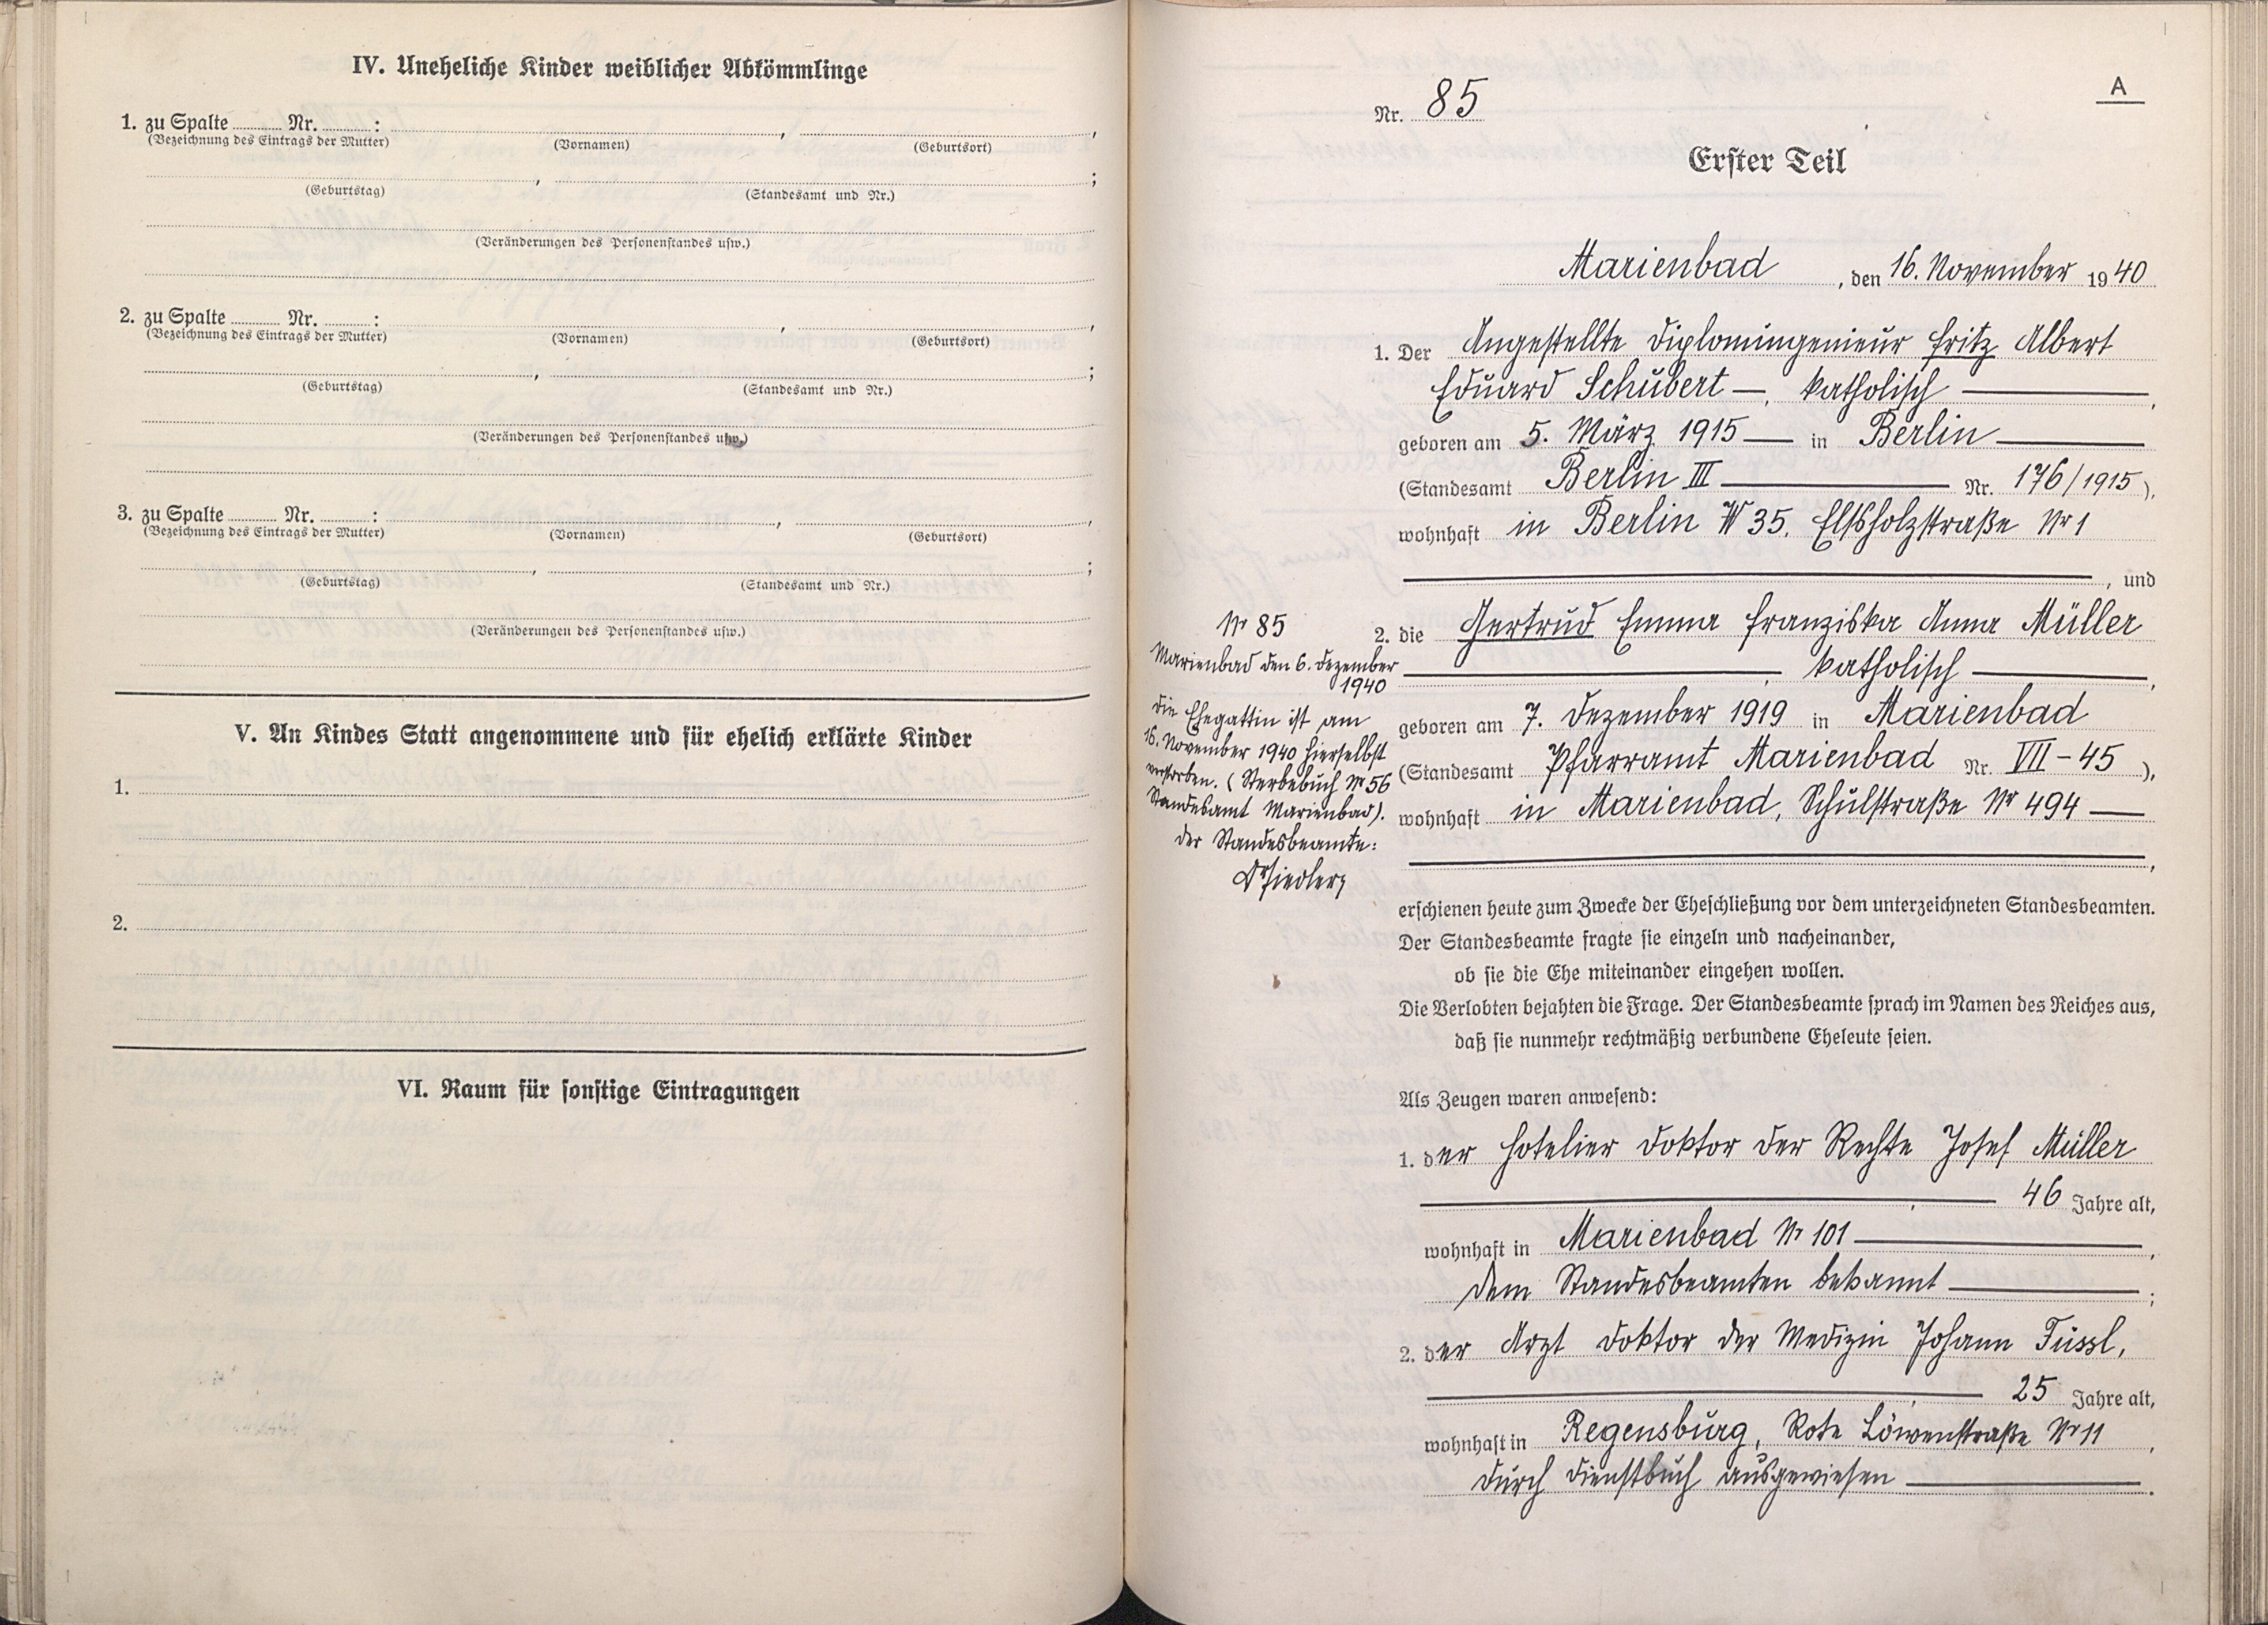 IV. Uneheliche Kinder weiblicher Abkömmlinge
1. zu Spalte ........ Nr. ........ :
(Bezeichnung des Eintrags der Mutter) (Vornamen) (Geburtsort)
(Geburtstag) (Standesamt und Nr.)
(Veränderungen des Personenstandes usw.)
2. zu Spalte ........ Nr. ........ :
(Bezeichnung des Eintrags der Mutter) (Vornamen) (Geburtsort)
(Geburtstag) (Standesamt und Nr.)
(Veränderungen des Personenstandes usw.)
3. zu Spalte ........ Nr. ........ :
(Bezeichnung des Eintrags der Mutter) (Vornamen) (Geburtsort)
(Geburtstag) (Standesamt und Nr.)
(Veränderungen des Personenstandes usw.)
V. An Kindes Statt angenommene und für ehelich erklärte Kinder
1.
2.
VI. Raum für sonstige Eintragungen
A
Nr. 85
Erster Teil
Marienbad, den 16. November 1940
1. Der Angestellte Diplomingenieur Fritz Albert
Eduard Schubert —, katholisch —,
geboren am 5. März 1915 — in Berlin —
(Standesamt Berlin III — Nr. 176/1915),
wohnhaft in Berlin W 35, Elßholzstraße Nr 1
—, und
2. die Gertrud Emma Franziska Anna Müller
— katholisch —,
geboren am 7. Dezember 1919 in Marienbad
(Standesamt Pfarramt Marienbad Nr. VII - 45),
wohnhaft in Marienbad, Schulstraße Nr 494 —
—,
Nr 85
Marienbad den 6. Dezember
1940
Die Ehegattin ist am
16. November 1940 hierselbst
verstorben. (Sterbebuch Nr 56
Standesamt Marienbad).
Der Standesbeamte:
erschienen heute zum Zwecke der Eheschließung vor dem unterzeichneten Standesbeamten.
Der Standesbeamte fragte sie einzeln und nacheinander,
ob sie die Ehe miteinander eingehen wollen.
Die Verlobten bejahten die Frage. Der Standesbeamte sprach im Namen des Reiches aus,
daß sie nunmehr rechtmäßig verbundene Eheleute seien.
Als Zeugen waren anwesend:
1. der Hotelier Doktor der Rechte Josef Müller
—, 46 Jahre alt,
wohnhaft in Marienbad Nr 101 —,
dem Standesbeamten bekannt —;
2. der Arzt Doktor der Medizin Johann Füssl,
—, 25 Jahre alt,
wohnhaft in Regensburg, Rote Löwenstraße Nr 11,
durch Dienstbuch ausgewiesen —.